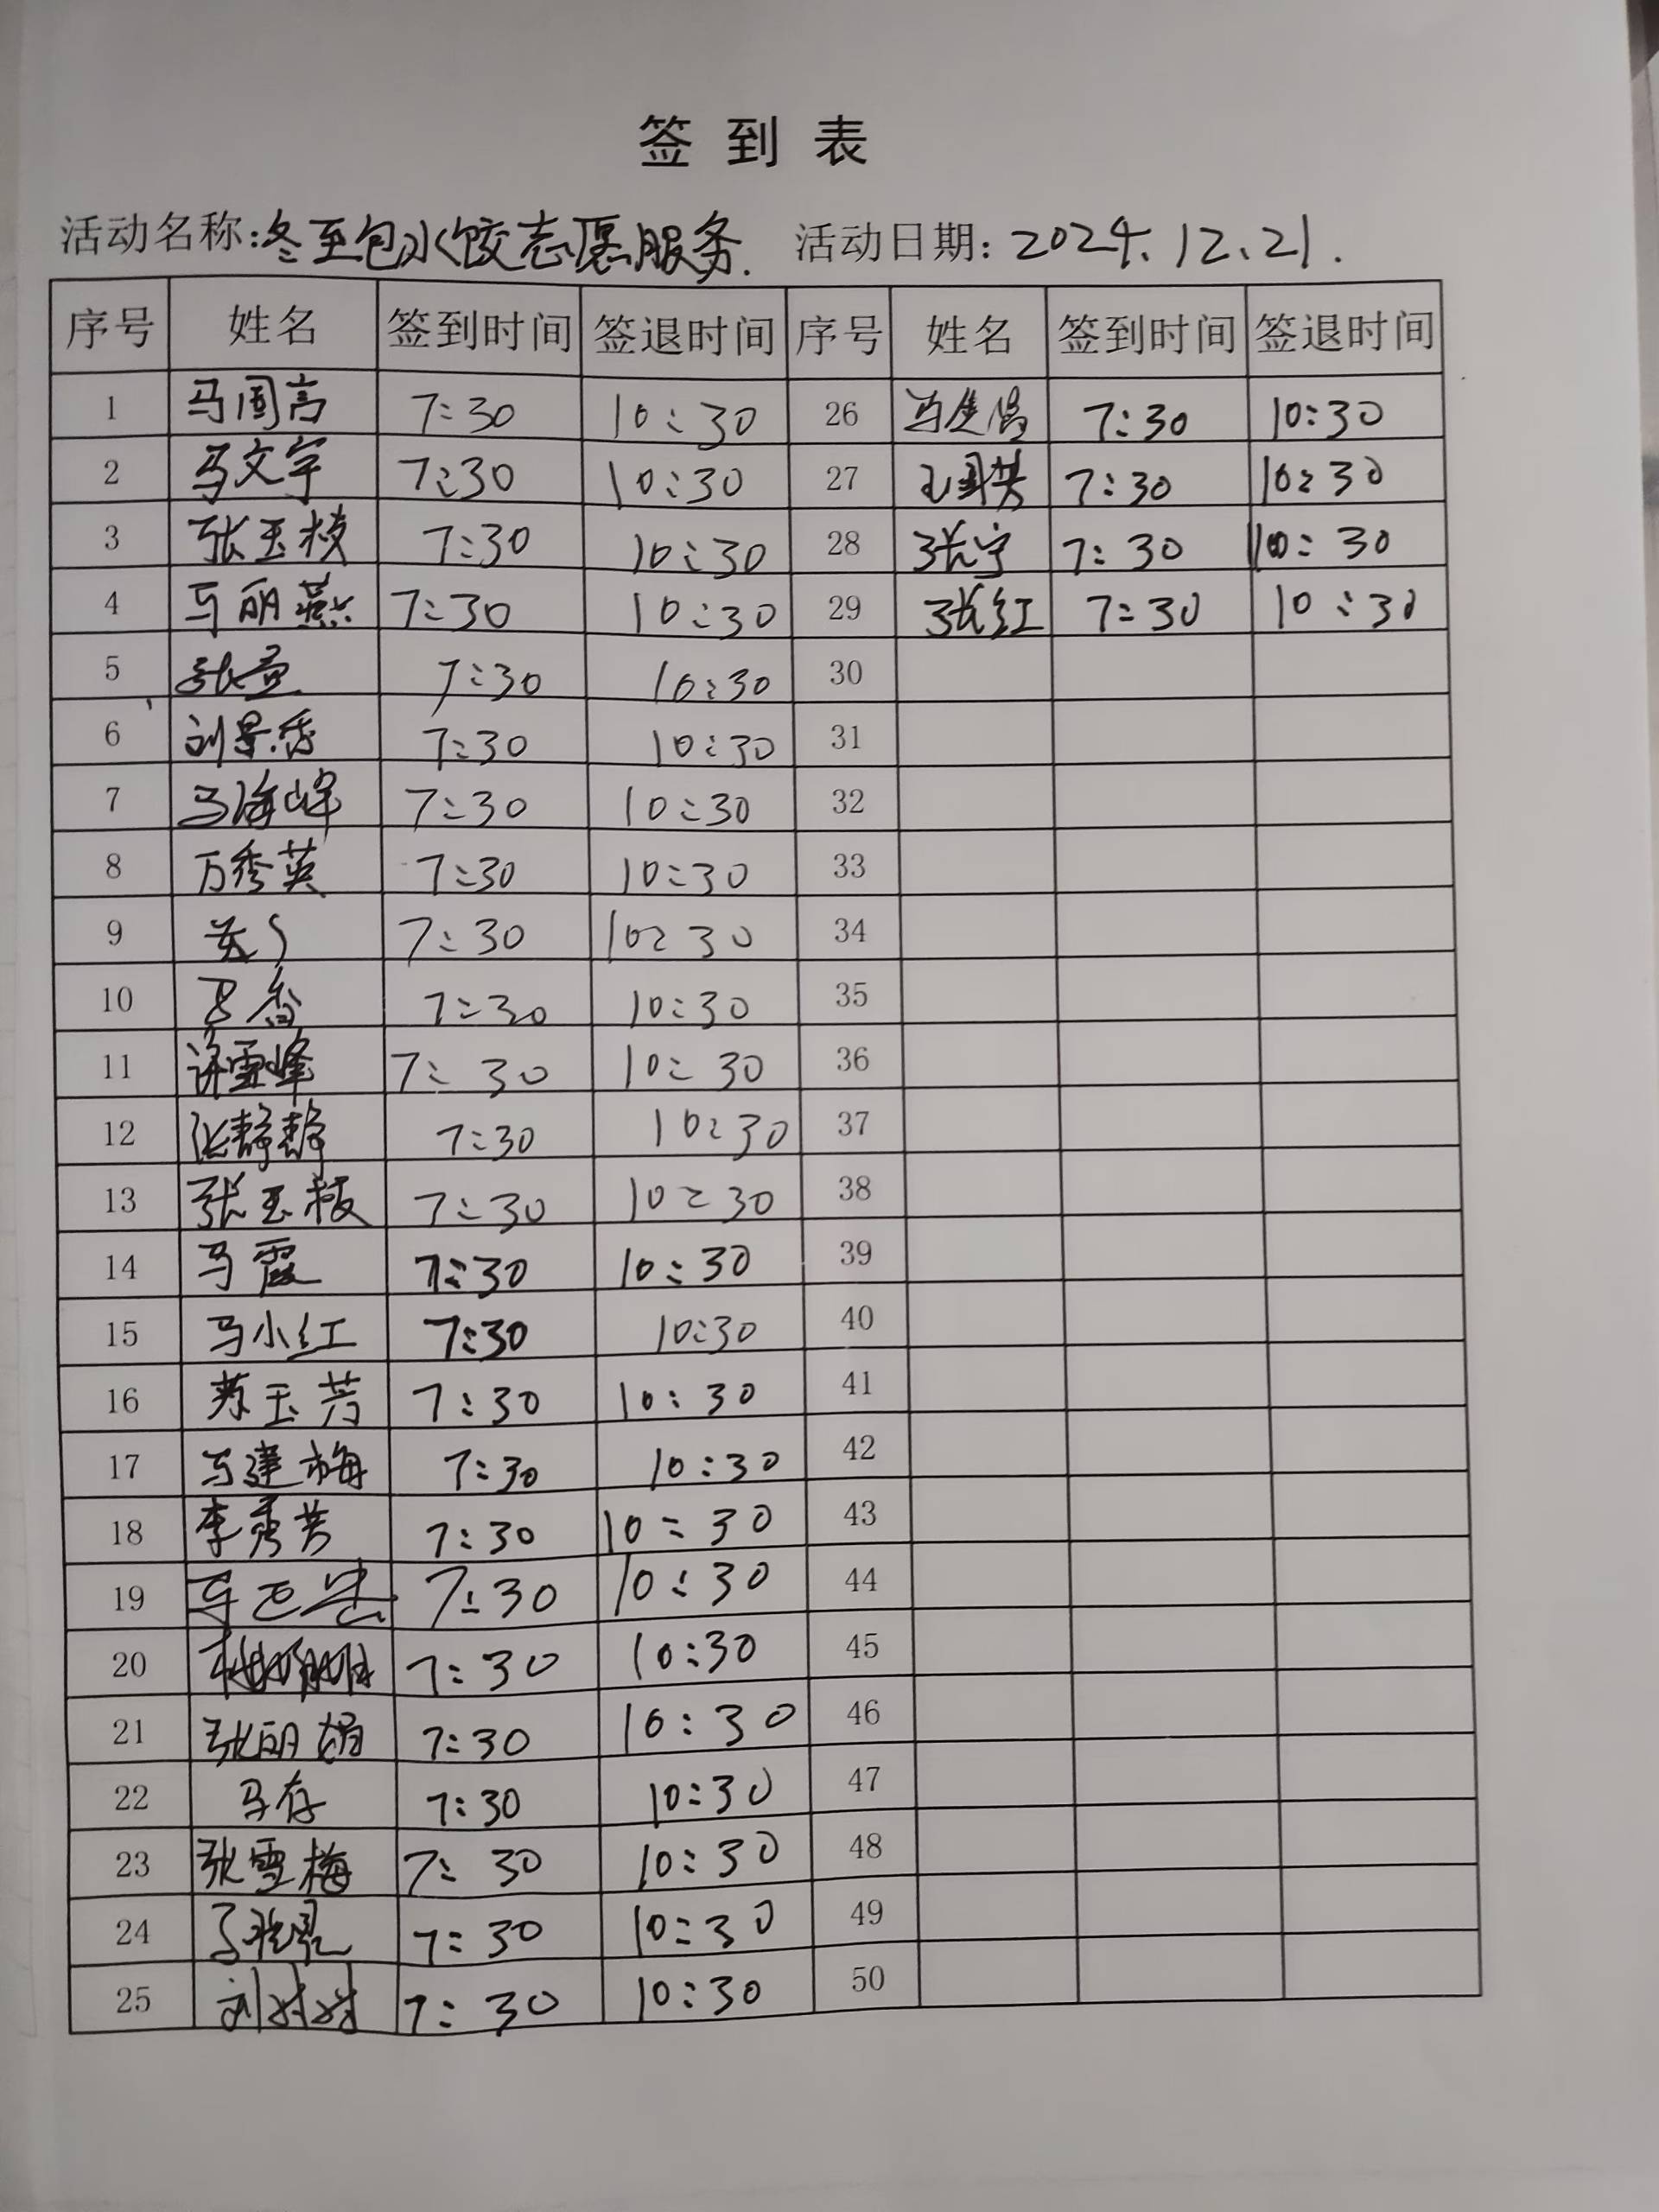 签到表
活动名称:冬至包水饺志愿服务. 活动日期: 2024.12.21.
序号 姓名 签到时间 签退时间 序号 姓名 签到时间 签退时间
1 马周高 7:30 10:30 26 7:30 10:30
2 马文宇 7:30 10:30 27 7:30 10:30
3 张玉枝 7:30 10:30 28 张宁 7:30 10:30
4 马丽燕 7:30 10:30 29 张红 7:30 10:30
5 7:30 10:30 30
6 刘景香 7:30 10:30 31
7 马海峰 7:30 10:30 32
8 万秀英 7:30 10:30 33
9 7:30 10:30 34
10 7:30 10:30 35
11 许雪峰 7:30 10:30 36
12 张静静 7:30 10:30 37
13 张玉枝 7:30 10:30 38
14 马霞 7:30 10:30 39
15 马小红 7:30 10:30 40
16 苏玉芳 7:30 10:30 41
17 马建梅 7:30 10:30 42
18 李秀芳 7:30 10:30 43
19 7:30 10:30 44
20 7:30 10:30 45
21 张丽娟 7:30 10:30 46
22 马存 7:30 10:30 47
23 张雪梅 7:30 10:30 48
24 7:30 10:30 49
25 7:30 10:30 50